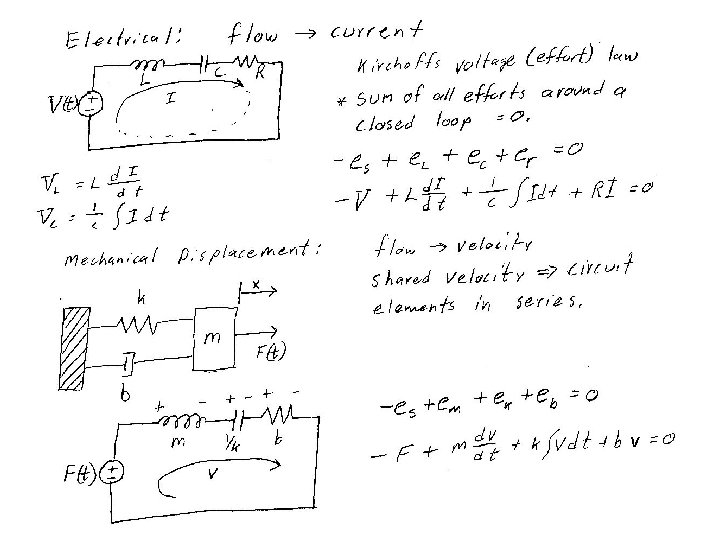 Electrical: flow → current
Kirchoffs voltage (effort) law
* Sum of all efforts around a
closed loop = 0.
L C R
V(t) ± I
-e_s + e_L + e_c + e_r = 0
V_L = L dI/dt
-V + L dI/dt + 1/c ∫Idt + RI = 0
V_c = 1/c ∫I dt
Mechanical Displacement:
flow → velocity
shared velocity => circuit
elements in series.
k x
m
F(t)
b
+ - + - + -
m 1/k b
F(t) ± V
-e_s + e_m + e_k + e_b = 0
-F + m dv/dt + k∫vdt + bv = 0